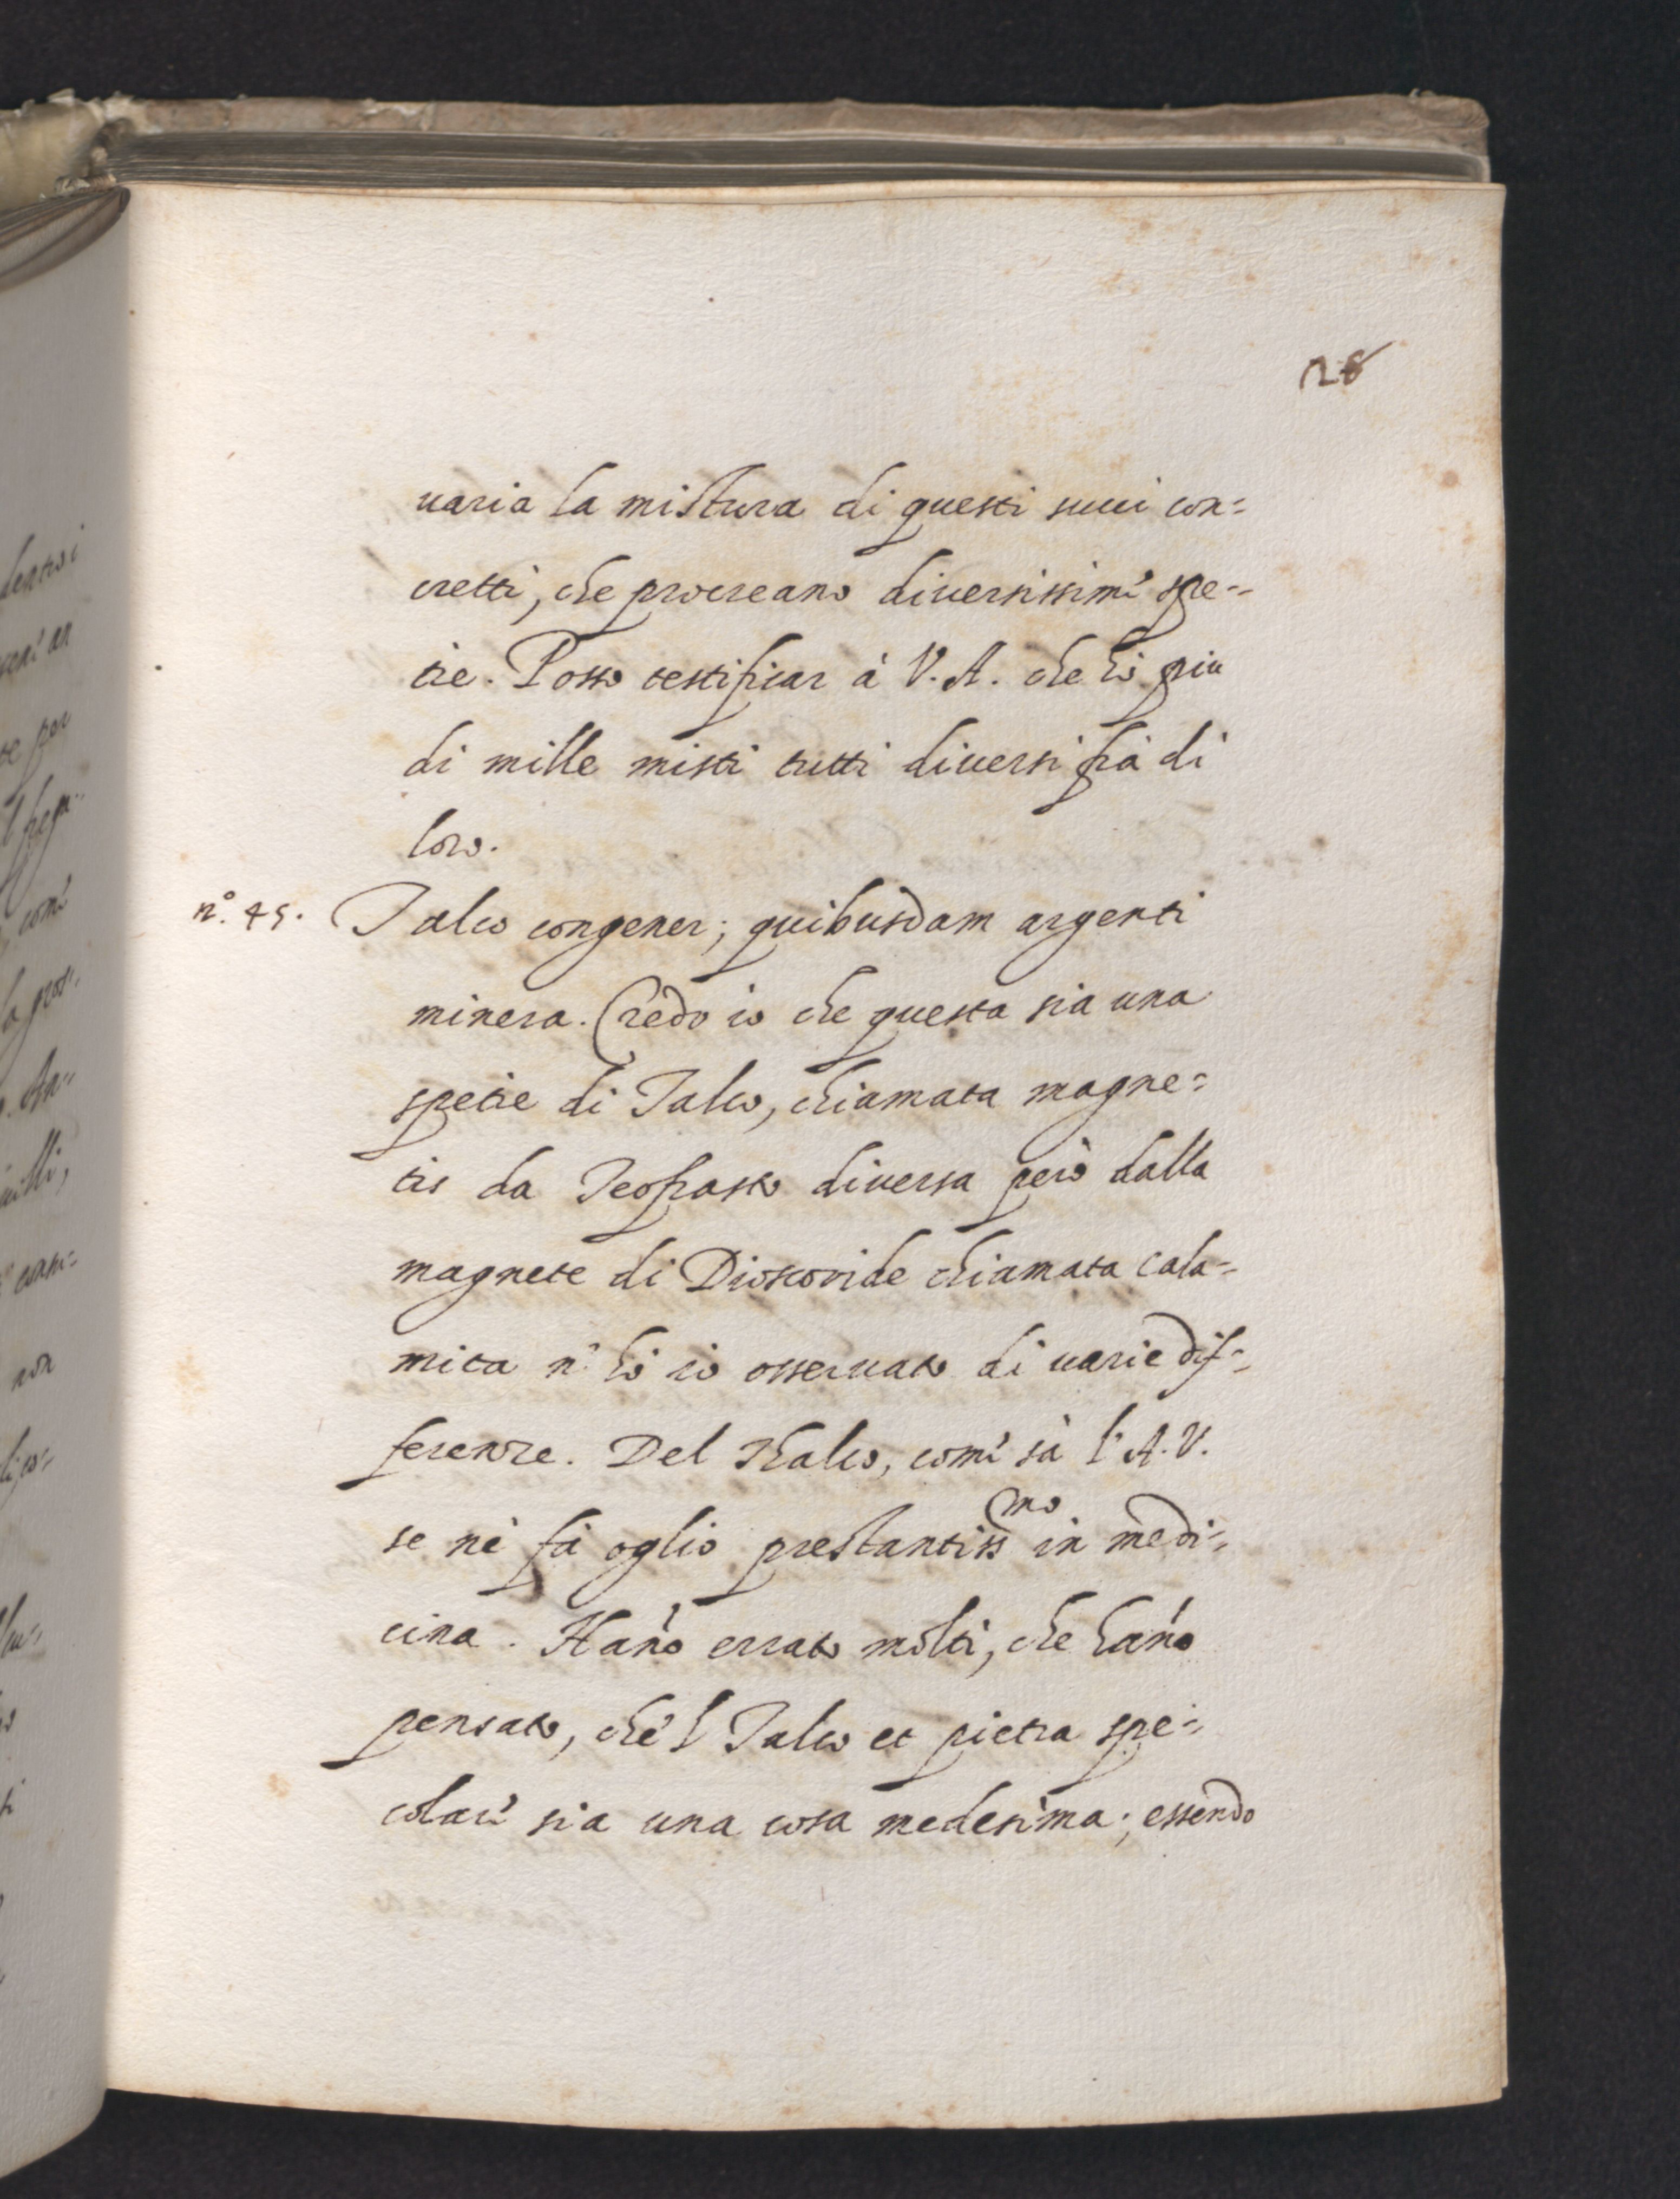 128
uaria la mistura di questi succi con=
cretti, che procreano diuersissime spe=
tie. Posso testificar à V. A. che hò piu
di mille misti tutti diuersi frà di
loro.
n.° 45. Talco congener; quibusdam argenti
minera. Credo io che questa sia una
spetie di Talco, chiamata magne=
tis da Teofrasto diuersa però dalla
magnete di Dioscoride chiamata cala=
mita n' hò io osseruato di uarie dif=
ferenze. Del Thalco, come sà l'A. V.
se nè fà oglio prestantiss.mo in medi=
cina. Hano errato molti, che hano
pensato, che'l Talco et pietra spe=
colare sia una cosa medesima; essendo